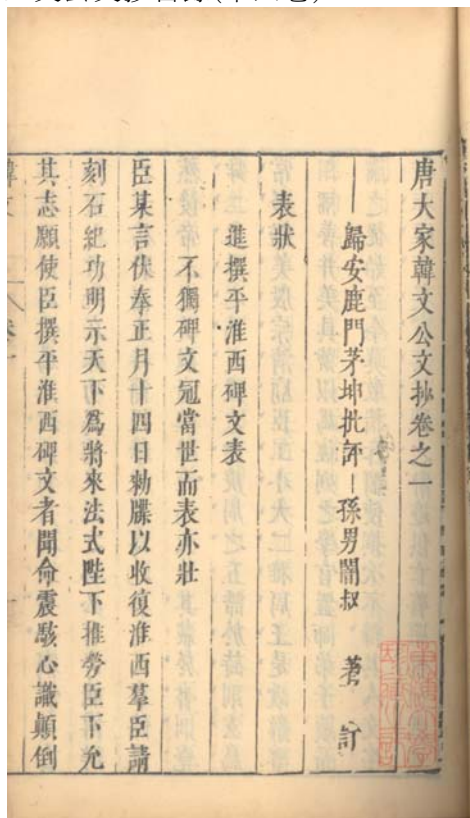 唐大家韓文公文抄卷之一
歸安鹿門茅坤批評 孫男闇叔 著 訂
表狀
進撰平淮西碑文表
不獨碑文冠當世而表亦壯
臣某言伏奉正月十四日勑牒以收復淮西羣臣請
刻石紀功明示天下爲將來法式陛下推勞臣下允
其志願使臣撰平淮西碑文者聞命震駭心識顛倒